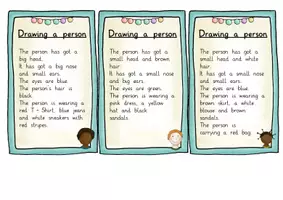 Drawing a person
The person has got a
big head.
It has got a big nose
and small ears.
The eyes are blue.
The person's hair is
black.
The person is wearing a
red T - Shirt, blue jeans
and white sneakers with
red stripes.
Drawing a person
The person has got a
small head and brown
hair.
It has got a small nose
and big ears.
The eyes are green.
The person is wearing a
pink dress, a yellow
hat and black
sandals.
Drawing a person
The person has got a
small head and white
hair.
It has got a small nose
and small ears.
The eyes are blue.
The person is wearing a
brown skirt, a white
blouse and brown
sandals.
The person is
carrying a red bag.